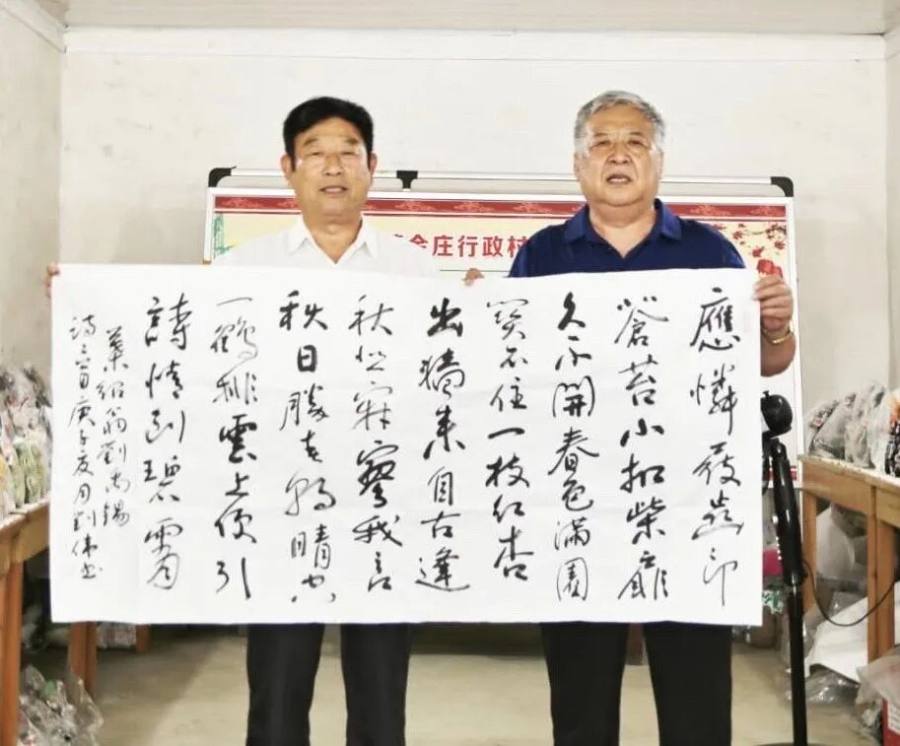 会庄行政村
應憐屐齒印
蒼苔小扣柴扉
久不開春色滿園
関不住一枝红杏
出墻来自古逢
秋悲寂寥我言
秋日勝春朝晴空
一鶴排雲上便引
詩情到碧霄
葉紹翁劉禹錫
詩二首庚子夏月劉偉书